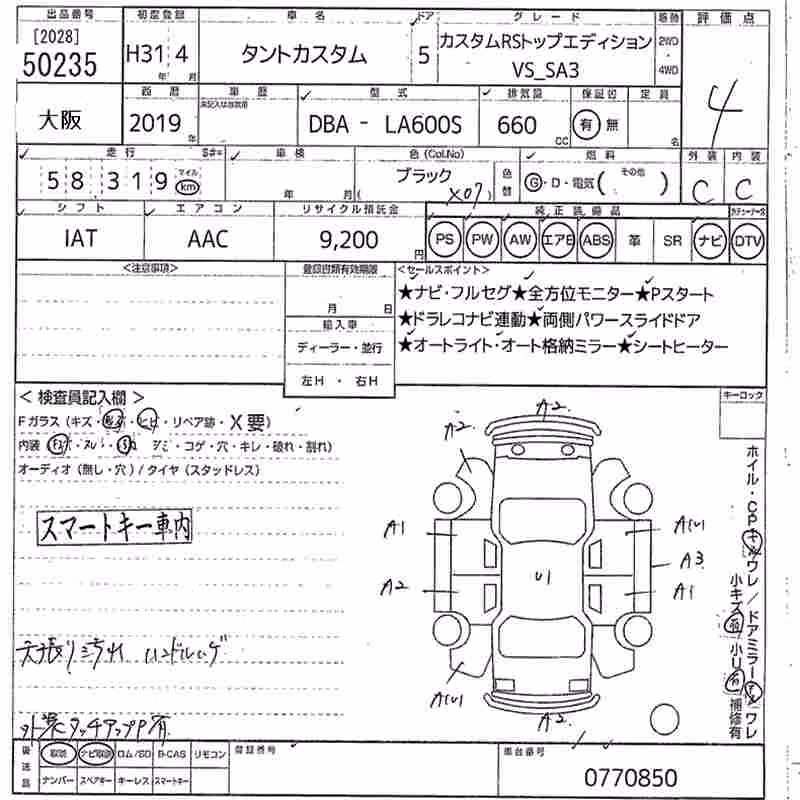 出品番号 初度登録 車名 ドア グレード 駆動 評価点
[2028]
50235 H31年 4月 タントカスタム 5 カスタムRSトップエディション
VS_SA3 2WD・4WD 4
西暦 車歴 型式 排気量 保証書 定員
大阪 2019年 DBA - LA600S 660cc 有 無 名
走行 車検 色(Col.No) 燃料 外装 内装
58,319 マイル km 年 月 ブラック X07 色替 G・D・電気( その他 ) C C
シフト エアコン リサイクル預託金 純正装備品
IAT AAC 9,200円 PS PW AW エアB ABS 革 SR ナビ DTV
<注意事項> 登録書類有効期限 <セールスポイント>
月 日 ★ナビ・フルセグ★全方位モニター★Pスタート
輸入車 ★ドラレコナビ連動★両側パワースライドドア
ディーラー・並行 ★オートライト・オート格納ミラー★シートヒーター
左H ・ 右H
<検査員記入欄> キーロック
Fガラス(キズ・飛石・ヒビ・リペア跡・X要)
内装 ・コゲ・穴・キレ・破れ・割れ)
オーディオ(無し・穴)/タイヤ(スタッドレス)
スマートキー車内
天張り汚れ ハンドルハゲ
外装タッチアップP有
A2
A2
A1 A(U)
A3
A2 U1 A1
A(U)
A2
ホイル・CP キズ ワレ/ドアミラー キズ ワレ
小キズ 有 小U 有 補修有
後送品 取説 ナビ取説 ロム/SD B-CAS リモコン 登録番号 車台番号
ナンバー スペアキー キーレス スマートキー 0770850